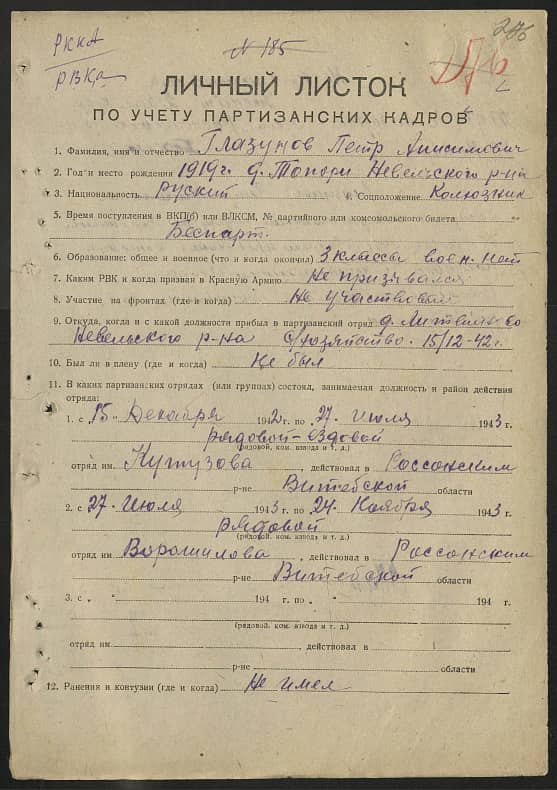 276
РККА
РВКа
№ 185
ЛИЧНЫЙ ЛИСТОК
ПО УЧЕТУ ПАРТИЗАНСКИХ КАДРОВ
1. Фамилия, имя и отчество Глазунов Петр Анисимович
2. Год и место рождения 1919г. д. Топоры Невельского р-на
3. Национальность Руский 4. Соцположение Колхозник
5. Время поступления в ВКП(б) или ВЛКСМ, № партийного или комсомольского билета
Беспарт.
6. Образование: общее и военное (что и когда окончил) 3 класса воен. нет
7. Каким РВК и когда призван в Красную Армию Не призвался
8. Участие на фронтах (где и когда) Не участвовал
9. Откуда, когда и с какой должности прибыл в партизанский отряд д.
Невельского р-на с/хозяйство. 15/12-42г.
10. Был ли в плену (где и когда) Не был
11. В каких партизанских отрядах (или группах) состоял, занимаемая должность и район действия
отряда:
1. с „15„ Декабря 1942г по „27„ июля 1943г.
рядовой-ездовой
(рядовой, ком. взвода и т. д.)
отряд им. Кутузова, действовал в Россонским
р-не Витебской области
2. с „27„ Июля 1943 г. по „24„ Ноября 1943 г.
рядовой
(рядовой, ком. взвода и т. д.)
отряд им Ворошилова, действовал в Россонским
р-не Витебской области
3. с „ „ 194 г. по „ „ 194 г.
(рядовой, ком. взвода и т. д.)
отряд им. , действовал в
р-не области
12. Ранения и контузии (где и когда) Не имел